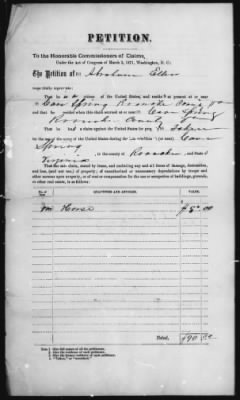 PETITION.
To the Honorable Commissioners of Claims,
Under the Act of Congress of March 3, 1871, Washington, D. C.:
The Petition of Abraham
respectfully represents:
That he is a citizen of the United States, and resides at present at or near
Cave Spring Roanoke
and that he resided when this claim accrued at or near Cave Spring
Roanoke County
That he has a claim against the United States for property taken
for the use of the army of the United States during the late rebellion at Cave
Spring
in the county of Roanoke, and State of
Virginia
That the said claim, stated by items, and excluding any and all items of damage, destruction,
and loss, (and not use,) of property; of unauthorized or unnecessary depredations by troops and
other persons upon property, or of rent or compensation for the use or occupation of buildings, grounds,
or other real estate, is as follows:
No. of Item. QUANTITIES AND ARTICLES. VALUE.
Horse
Total, $90